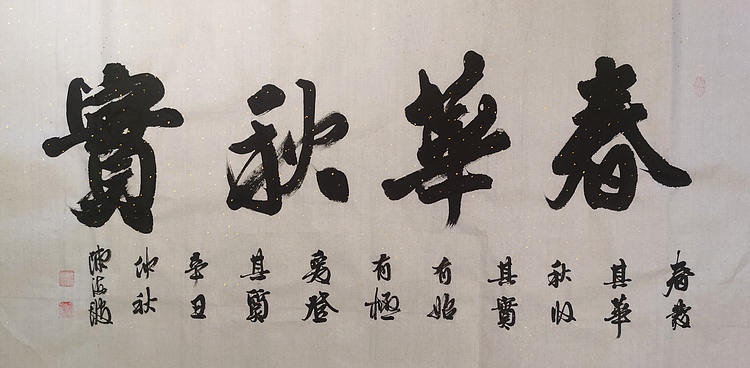 春華秋實
春發
其華
秋收
其實
有始
有極
爰登
其質
辛丑
仲秋
陳海